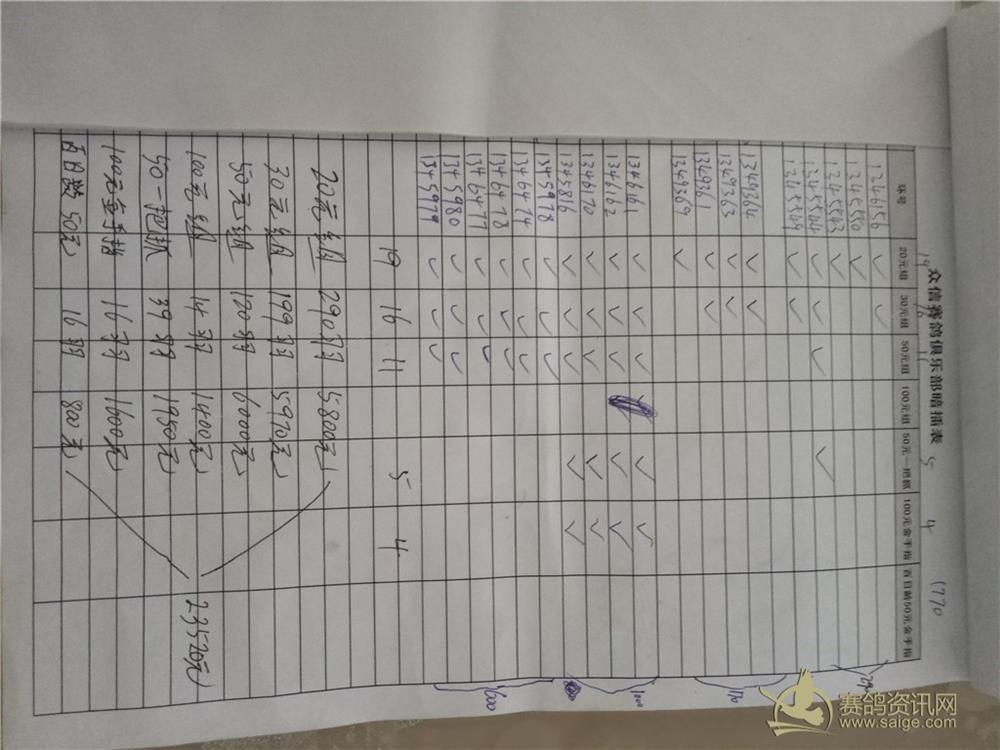 众信赛鸽俱乐部暗插表
19 16 11 5 4 1770
环号 20元组 30元组 50元组 100元组 50元一把抓 100元金手指 百日龄50元金手指
1346156 ✓ ✓
1345550 ✓
✓
✓ ✓ ✓ ✓
✓ ✓
1349364 ✓ ✓
1349363 ✓ ✓
1349361 ✓ ✓
1349369 ✓
170
1346161 ✓ ✓ ✓ ✓ ✓
1346162 ✓ ✓ ✓ ✓
1346170 ✓ ✓ ✓ ✓ ✓
1345816 ✓ ✓ ✓ ✓ ✓
1000
1345978 ✓ ✓ ✓
1346474 ✓ ✓ ✓
1346478 ✓ ✓ ✓
1346477 ✓ ✓ ✓
1345980 ✓ ✓ ✓
1345979 ✓ ✓ ✓
600
19 16 11 5 4
20元组 290羽 5800元
30元组 199羽 5970元
50元组 120羽 6000元
100元组 14羽 1400元
50一把抓 39羽 1950元
100元金手指 16羽 1600元
百日龄50元 16羽 800元
23520元
赛鸽资讯网
www.saige.com